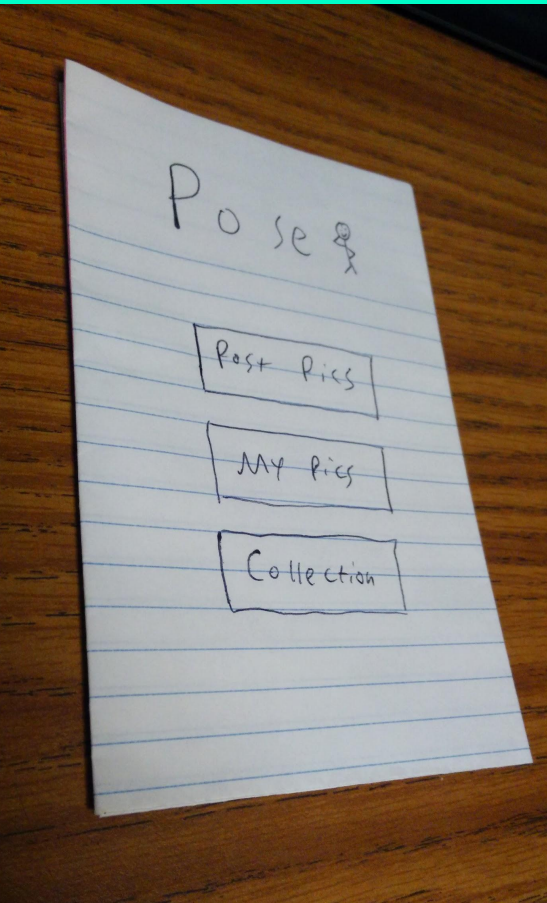 Pose
Post Pics
My Pics
Collection